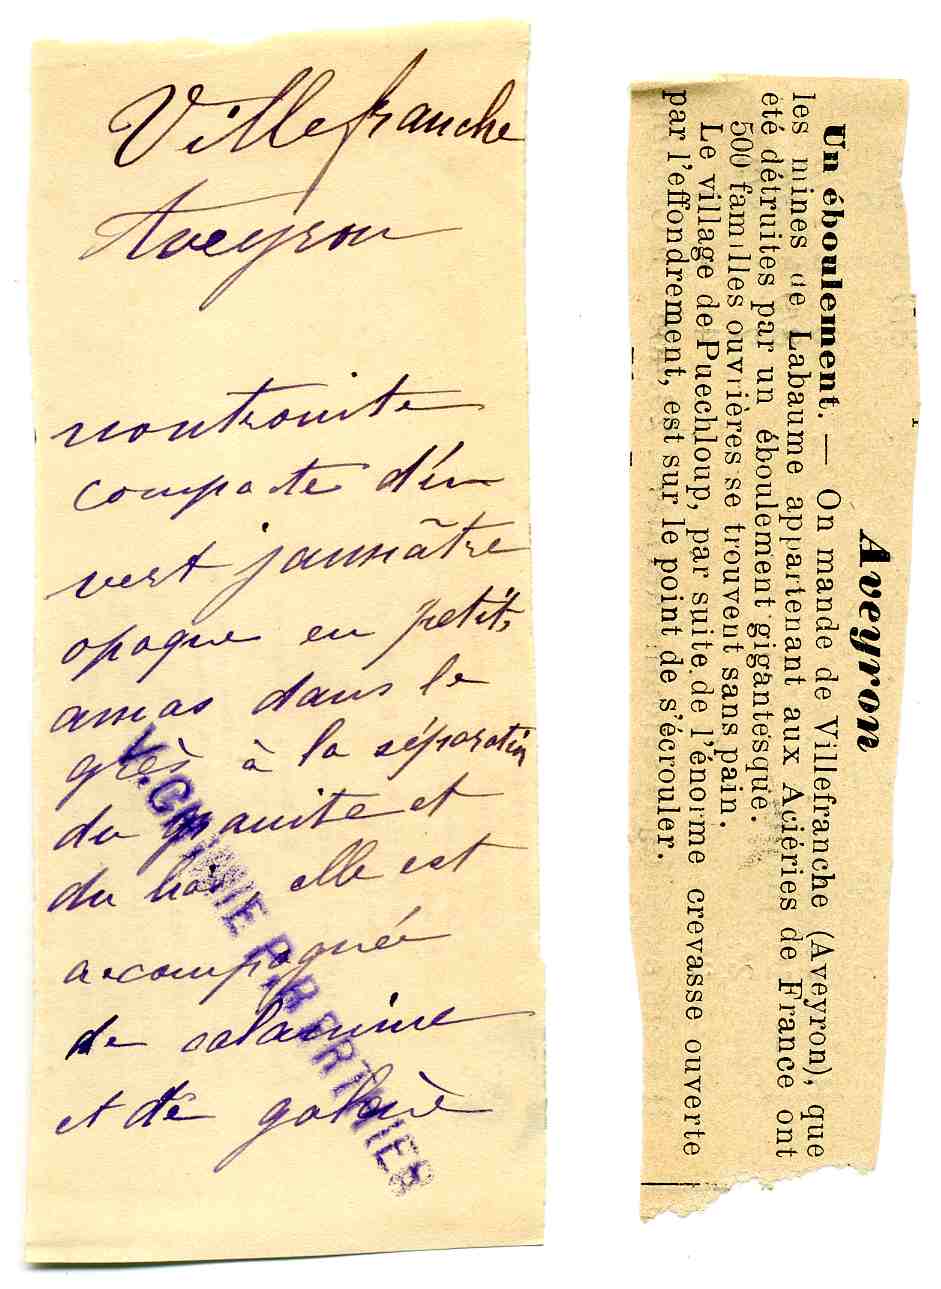 Villefranche
Aveyron
nontronite
compacte d'un
vert jaunâtre
opaque en petits
amas dans le
grès à la séparation
du granite et
du lias elle est
accompagnée
de calamine
et de galène
V. CH. MIE P. BERTHIER
Aveyron
Un éboulement. — On mande de Villefranche (Aveyron), que
les mines de Labaume appartenant aux Aciéries de France ont
été détruites par un éboulement gigantesque.
500 familles ouvrières se trouvent sans pain.
Le village de Puechloup, par suite de l'énorme crevasse ouverte
par l'effondrement, est sur le point de s'écrouler.